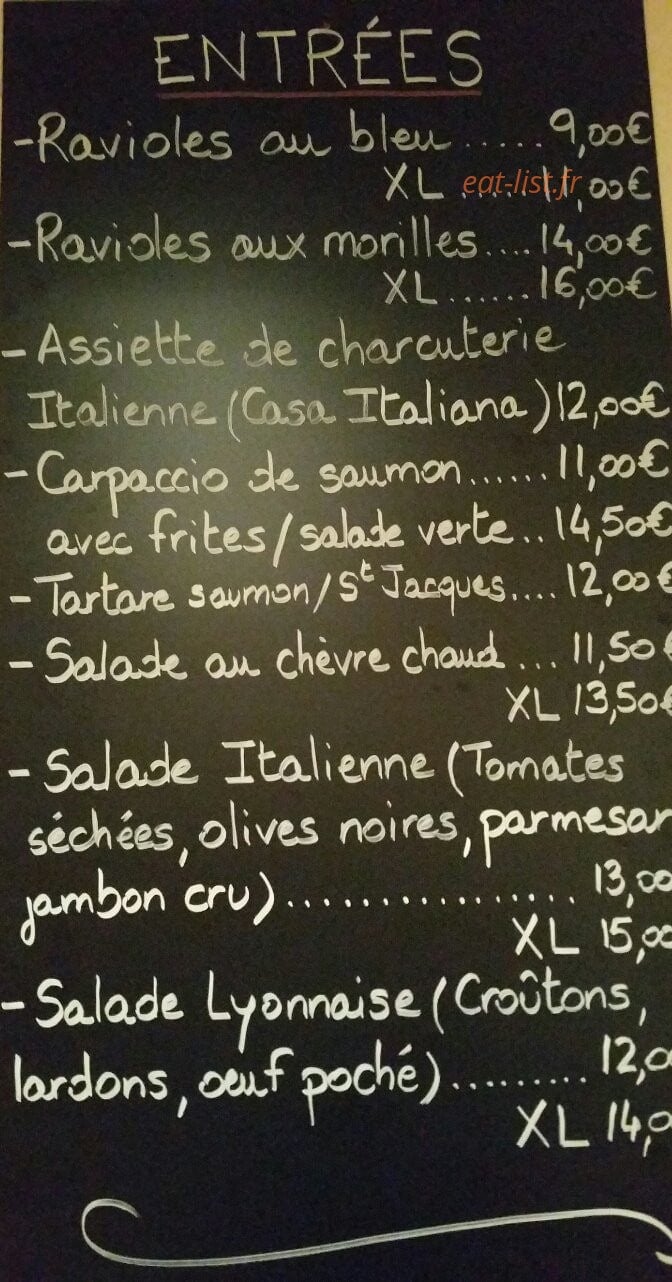 ENTRÉES
-Ravioles au bleu......9,00€
XL ......11,00€
eat-list.fr
-Ravioles aux morilles....14,00€
XL.......16,00€
- Assiette de charcuterie
Italienne (Casa Italiana) 12,00€
- Carpaccio de saumon......11,00€
avec frites/salade verte..14,50€
- Tartare saumon/St Jacques....12,00€
- Salade au chèvre chaud ... 11,50€
XL 13,50€
- Salade Italienne (Tomates
séchées, olives noires, parmesan
jambon cru)................. 13,00
XL 15,00
- Salade Lyonnaise (Croûtons,
lardons, oeuf poché)......... 12,0
XL 14,0